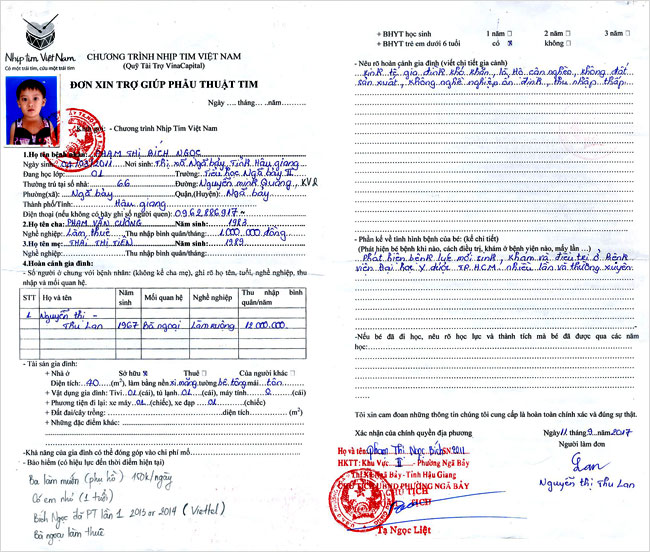 Nhịp Tim Việt Nam
Có một trái tim, cứu một trái tim
CHƯƠNG TRÌNH NHỊP TIM VIỆT NAM
(Quỹ Tài Trợ VinaCapital)
ĐƠN XIN TRỢ GIÚP PHẪU THUẬT TIM
Ngày .... tháng .... năm..........
Kính gởi: - Chương trình Nhịp Tim Việt Nam
1.Họ tên bệnh nhân: PHẠM THỊ BÍCH NGỌC
Ngày sinh: 04/03/2011 Nơi sinh: Thị xã Ngã bảy, Tỉnh Hậu giang
Đang học lớp: 01 Trường: Tiểu học Ngã bảy II
Thường trú tại số nhà: 66 Đường: Nguyễn minh Quang, KV2
Phường(xã): Ngã bảy Quận,(Huyện): Ngã bảy
Thành phố/Tỉnh: Hậu giang
Điện thoại (nếu không có hãy ghi số người quen): 0962886917
2.Họ tên cha: PHẠM VĂN CƯỜNG Năm sinh: 1983
Nghề nghiệp: Làm thuê Thu nhập bình quân/tháng: 1.000.000 đồng
3.Họ tên mẹ: THÁI THỊ TIÊN Năm sinh: 1989
Nghề nghiệp: Thu nhập bình quân/tháng:
4.Hoàn cảnh gia đình:
- Số người ở chung với bệnh nhân: (không kể cha mẹ), ghi rõ họ tên, tuổi, nghề nghiệp, thu
nhập và mối quan hệ.
STT Họ và tên Năm sinh Mối quan hệ Nghề nghiệp Thu nhập bình quân/năm
1 Nguyễn thị Thu Lan 1967 Bà ngoại Làm ruộng 12.000.000
- Tài sản gia đình:
+ Nhà ở Sở hữu Thuê Của người khác
Diện tích: 40 (m²), làm bằng nền xi.măng, tường bê.tông mái tôn
+ Vật dụng gia đình: Tivi 01 (cái), tủ lạnh 01 (cái), máy tính 0 (cái)
+ Phương tiện đi lại: xe máy 01 (chiếc), xe đạp 01 (chiếc)
+ Đất đai/cây trồng: diện tích (m²)
+ Những đặc điểm khác:
-Khả năng của gia đình có thể đóng góp vào chi phí mổ.
- Bảo hiểm (có hiệu lực đến thời điểm hiện tại)
Ba làm mướn (phụ hồ) 150k/ngày
Có em nhỏ (1 tuổi)
Bích Ngọc đã PT lần 1 2013 or 2014 (Viettel)
Bà ngoại làm thuê
+ BHYT học sinh 1 năm 2 năm 3 năm
+ BHYT trẻ em dưới 6 tuổi có không
- Nêu rõ hoàn cảnh gia đình (viết chi tiết gia cảnh)
kinh tế gia đình khó khăn, là Hộ cận nghèo, không đất
sản xuất, không nghề nghiệp ổn định, thu nhập thấp.
- Phần kể về tình hình bệnh của bé: (kể chi tiết)
(Phát hiện bệnh khi nào, cách điều trị, khám ở bệnh viện nào, mấy lần ...)
Phát hiện bệnh lúc mới sinh, khám và điều trị ở Bệnh
viện Đại học Y dược TP.HCM nhiều lần và thường xuyên.
-Nếu bé đã đi học, nêu rõ học lực và thành tích mà bé đã được qua các năm
học:
Tôi xin cam đoan những thông tin chúng tôi cung cấp là hoàn toàn chính xác và đúng sự thật.
Xác nhận của chính quyền địa phương
Ngày 11 tháng 9 năm 2017
Người làm đơn
Họ và tên: Phạm Thị Ngọc Bích SN 2011
HKTT: Khu Vực II - Phường Ngã Bảy
Thị Xã Ngã Bảy - Tỉnh Hậu Giang
CHỦ TỊCH UBND PHƯỜNG NGÃ BẢY
CHỦ TỊCH
Lan
Nguyễn Thị Thu Lan
Tạ Ngọc Liệt